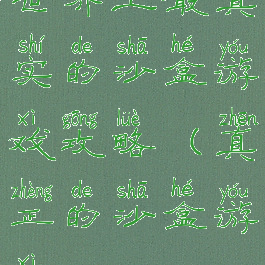 世界上最真
shí de shā hé yóu
实的沙盒游
xì gōng lüè zhēn
戏攻略（真
zhèng de shā hé yóu
正的沙盒游
xì